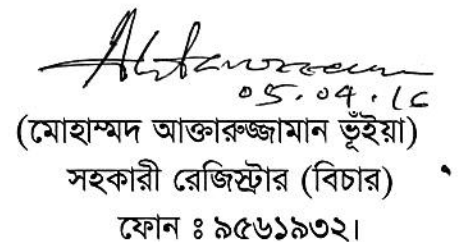 ০৫.০৪.১৬
(মোহাম্মদ আক্তারুজ্জামান ভূঁইয়া)
সহকারী রেজিস্ট্রার (বিচার)
ফোন ঃ ৯৫৬১৯৩২।